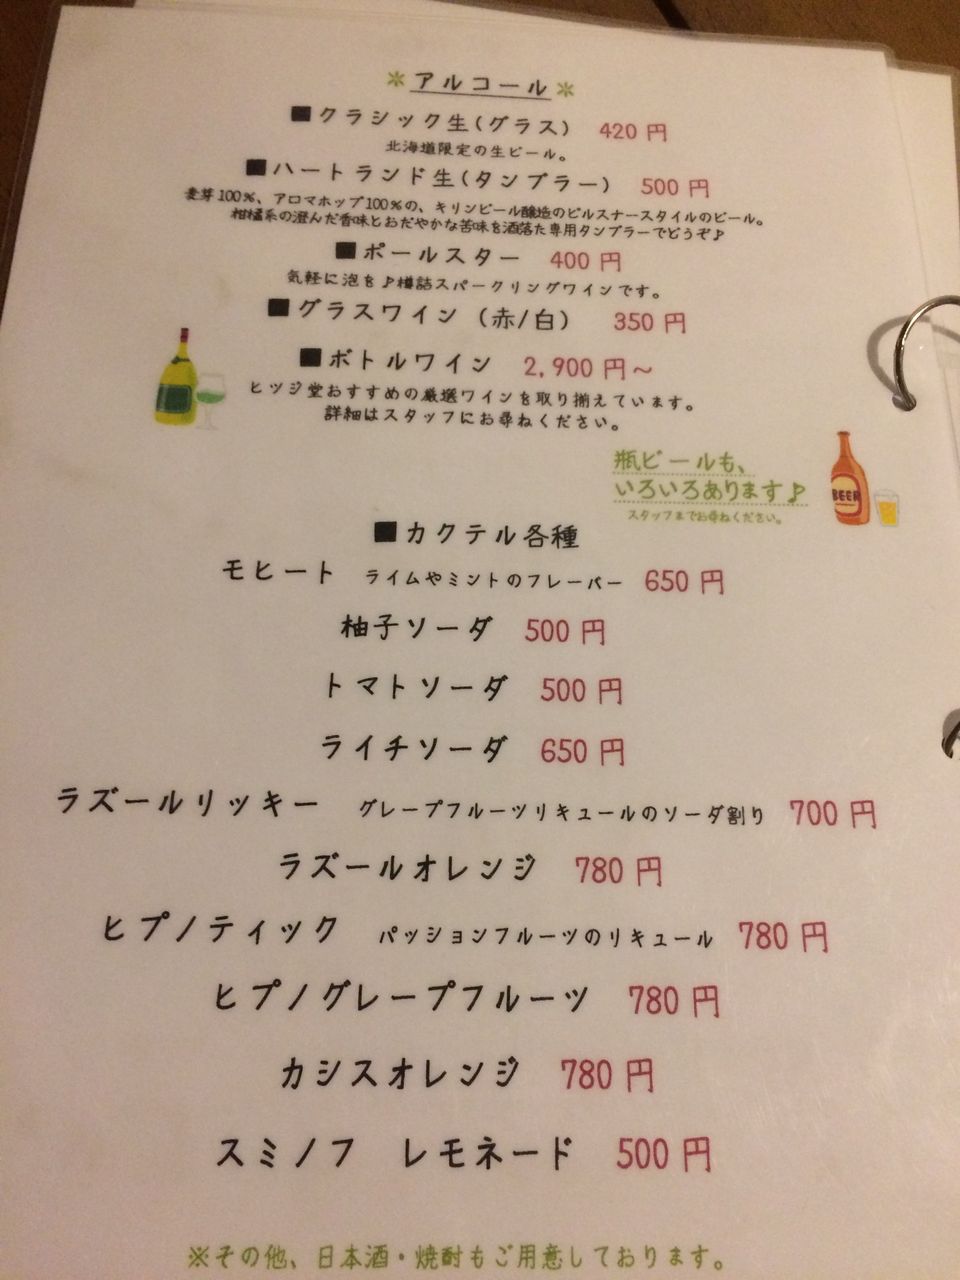 ＊アルコール＊
■クラシック生(グラス) 420円
北海道限定の生ビール。
■ハートランド生(タンブラー) 500円
麦芽100%、アロマホップ100%の、キリンビール醸造のピルスナースタイルのビール。
柑橘系の澄んだ香味とおだやかな苦味を洒落た専用タンブラーでどうぞ♪
■ポールスター 400円
気軽に泡を♪樽詰スパークリングワインです。
■グラスワイン (赤/白) 350円
■ボトルワイン 2,900円～
ヒツジ堂おすすめの厳選ワインを取り揃えています。
詳細はスタッフにお尋ねください。
瓶ビールも、
いろいろあります♪
スタッフまでお尋ねください。
BEER
■カクテル各種
モヒート ライムやミントのフレーバー 650円
柚子ソーダ 500円
トマトソーダ 500円
ライチソーダ 650円
ラズールリッキー グレープフルーツリキュールのソーダ割り 700円
ラズールオレンジ 780円
ヒプノティック パッションフルーツのリキュール 780円
ヒプノグレープフルーツ 780円
カシスオレンジ 780円
スミノフ レモネード 500円
※その他、日本酒・焼酎もご用意しております。